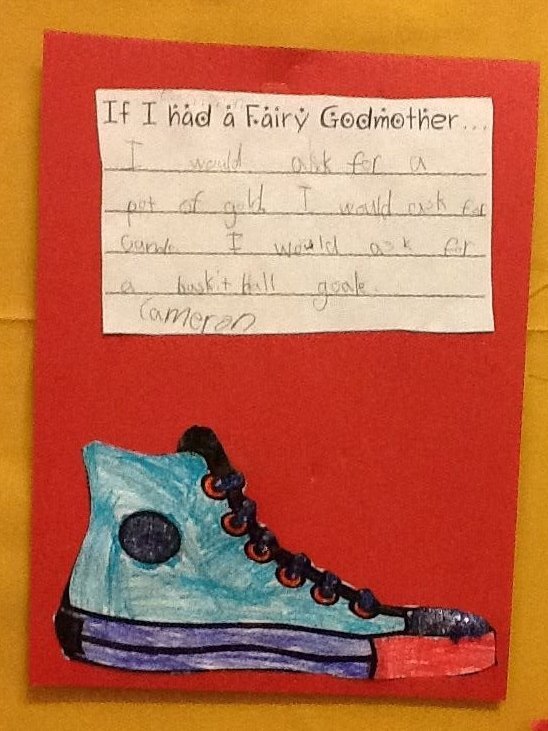 If I had a Fairy Godmother...
I would ask for a
pot of gold. I would ask for
I would ask for
a baskit ball goale.
Cameron